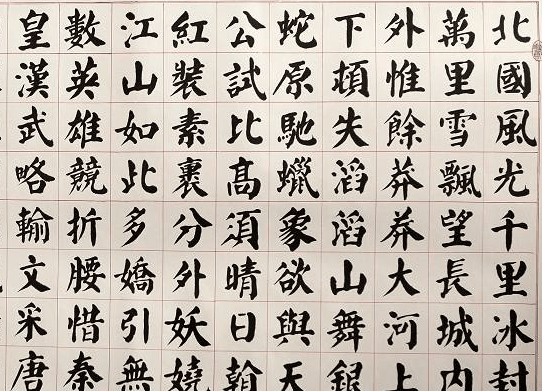 北國風光千里冰封
萬里雪飄望長城內
外惟餘莽莽大河上
下頓失滔滔山舞銀
蛇原馳蠟象欲與天
公試比高須晴日
紅裝素裹分外妖嬈
江山如此多嬌引無
數英雄競折腰惜秦
皇漢武略輸文采唐